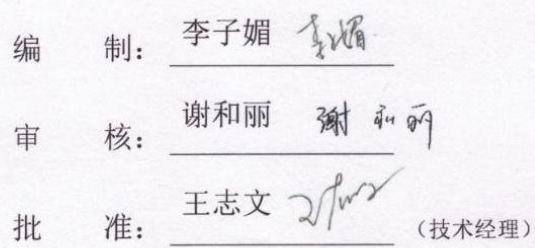 编 制： 李子媚 李子媚
审 核： 谢和丽 谢和丽
批 准： 王志文 王志文 （技术经理）